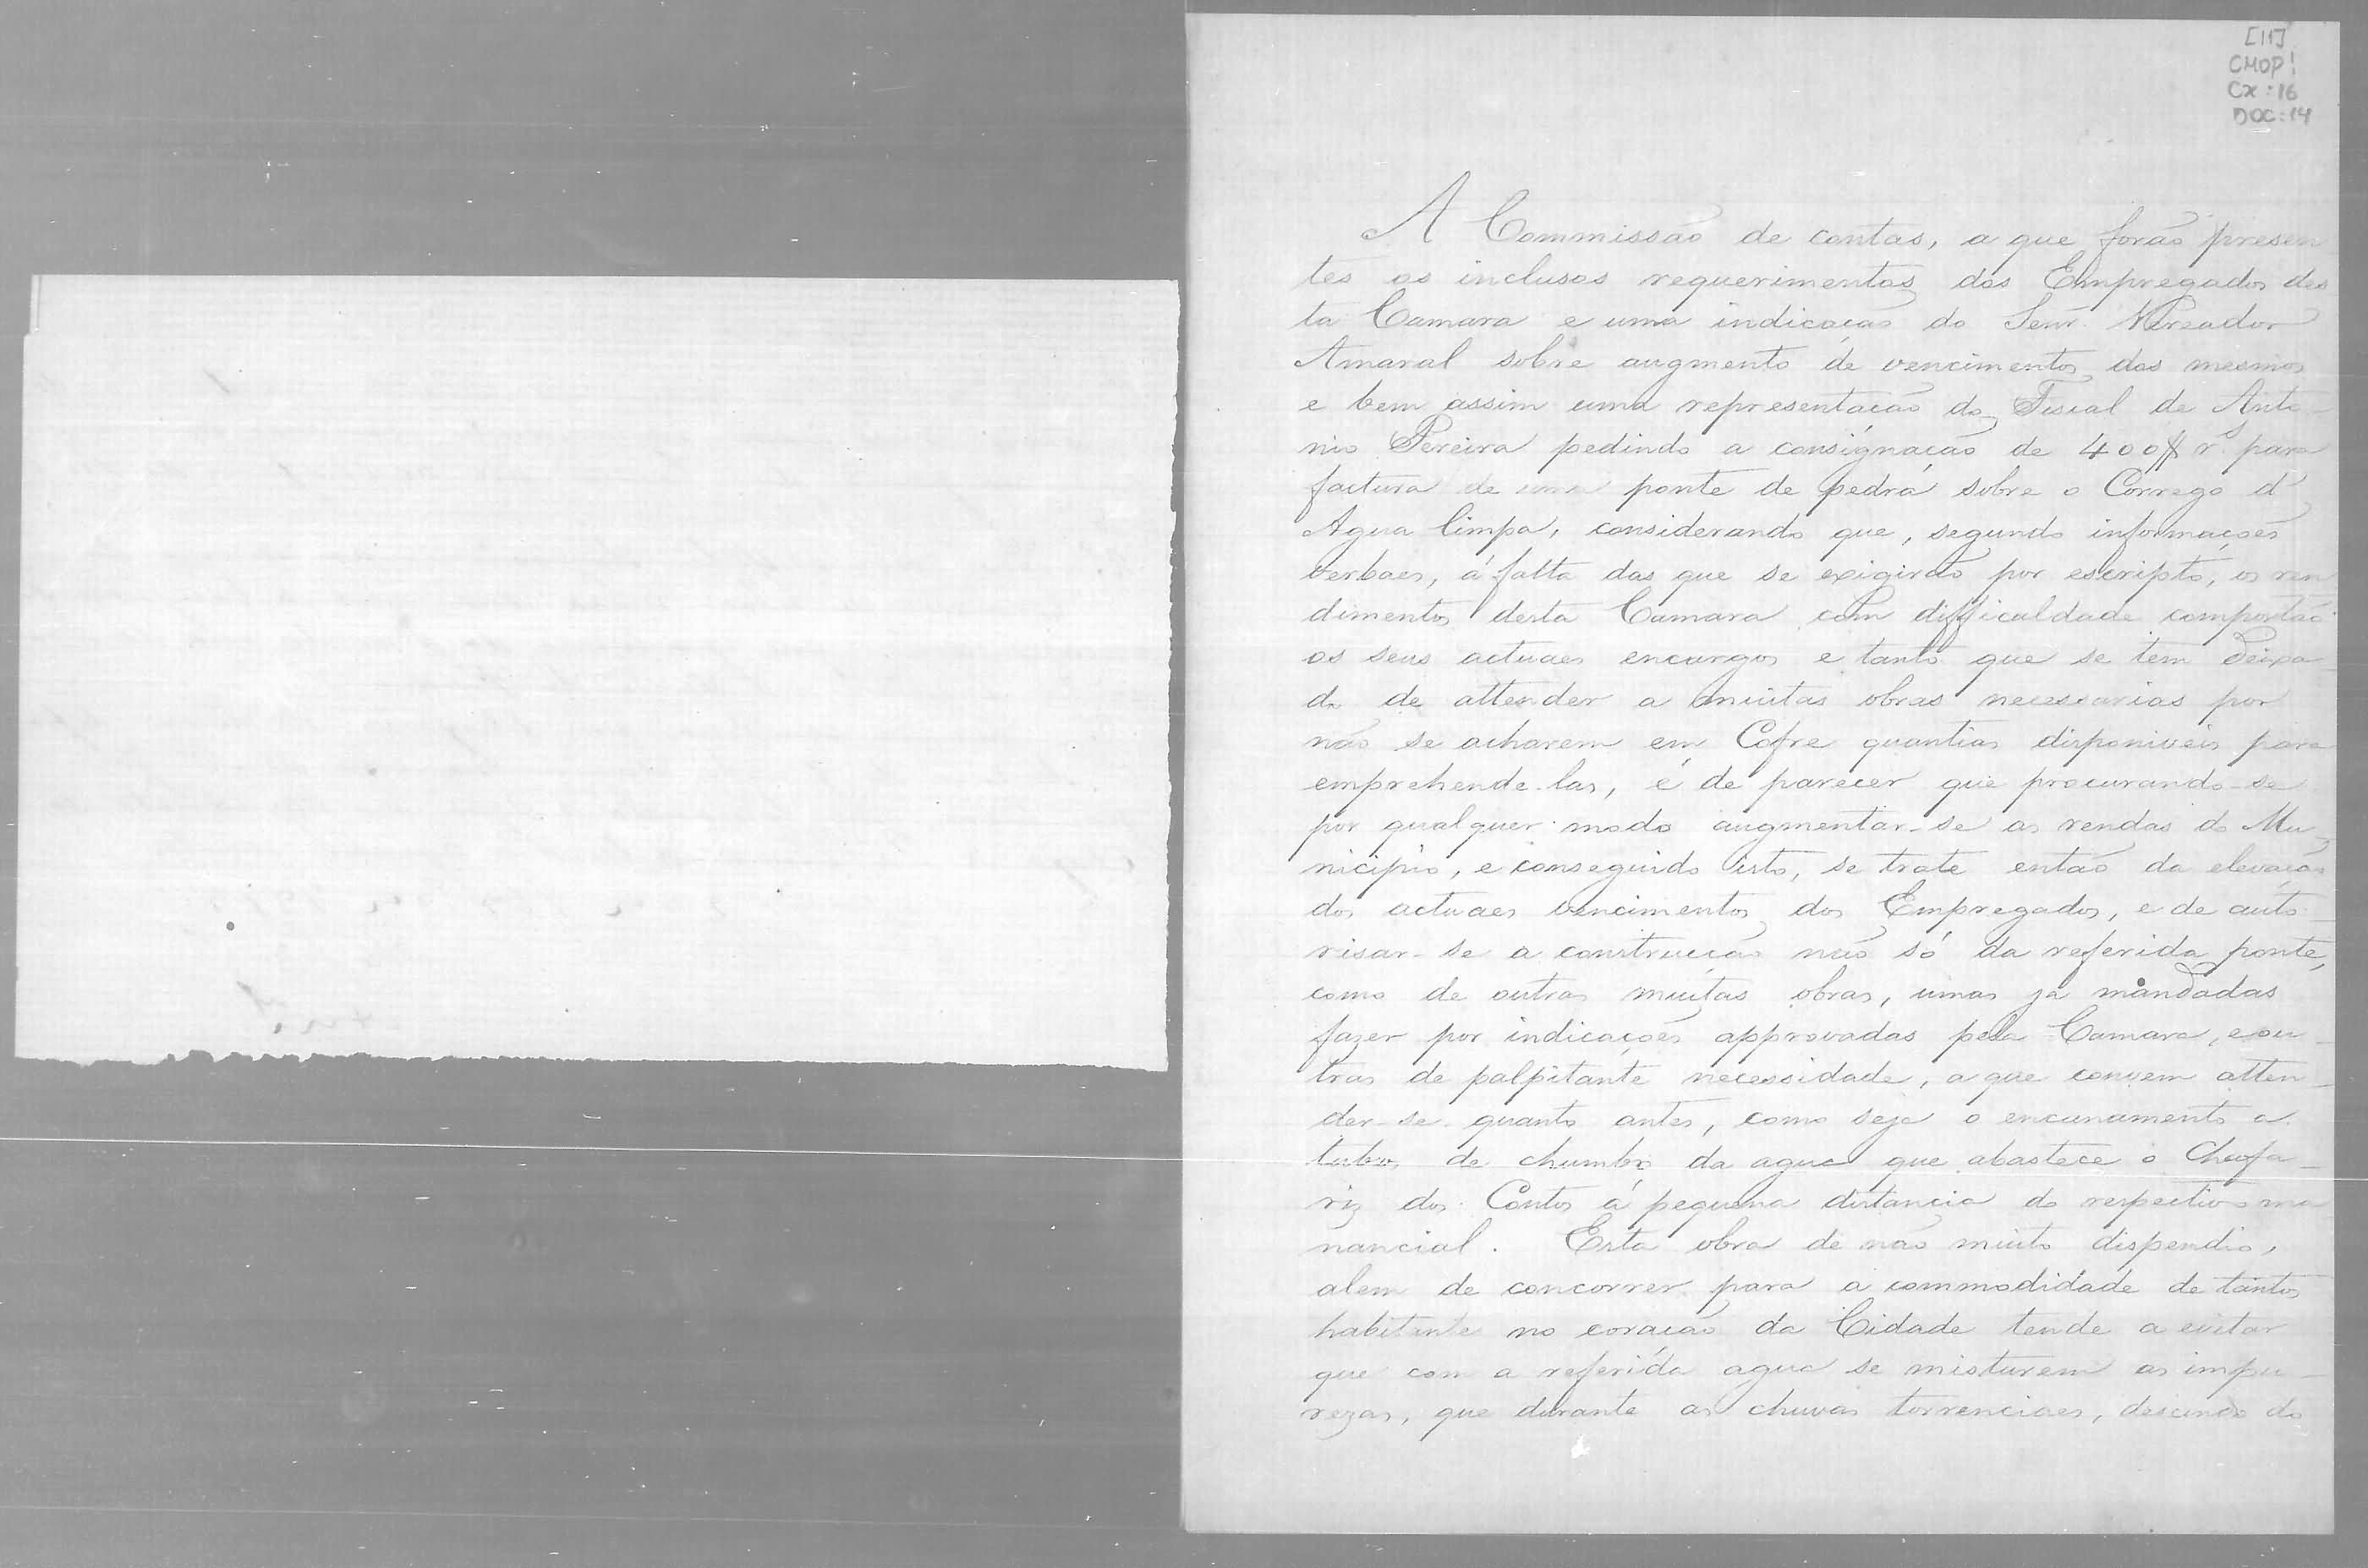 [11]
CMOP!
Cx: 16
DOC: 14
A Commissão de contas, a que forão presen
tes os inclusos requerimentos dos Empregados des
ta Camara e uma indicação do Senr. Vereador
Amaral sobre augmento de vencimentos dos mesmos
e bem assim uma representação do Fiscal de Anto
nio Pereira pedindo a consignação de 400$ rs para
factura de uma ponte de pedra sobre o Corrego d'
Agua limpa, considerando que, segundo informações
verbaes, á falta das que se exigirão por escripto, os ren
dimentos desta Camara com difficuldade comportão
os seus actuaes encargos e tanto que se tem deixa
do de attender a muitas obras necessarias por
não se acharem em Cofre quantias disponiveis para
emprehende-las, é de parecer que procurando-se
por qualquer modo augmentar-se as rendas do Mu
nicipio, e conseguido isto, se trate então da elevação
dos actuaes vencimentos dos Empregados, e de auto
risar-se a construcção não só da referida ponte,
como de outras muitas obras, umas já mandadas
fazer por indicações approvadas pela Camara, e ou
tras de palpitante necessidade, a que convem atten
der-se quanto antes, como seja o encanamento a
tubos de chumbo da agua que abastece o Chafa
riz dos Contos á pequena distancia do respectivo ma
nancial. Esta obra de não muito dispendio,
alem de concorrer para a commodidade de tantos
habitantes no coração da Cidade tende a evitar
que com a referida agua se misturem as impu
rezas, que durante as chuvas torrenciaes, descendo do